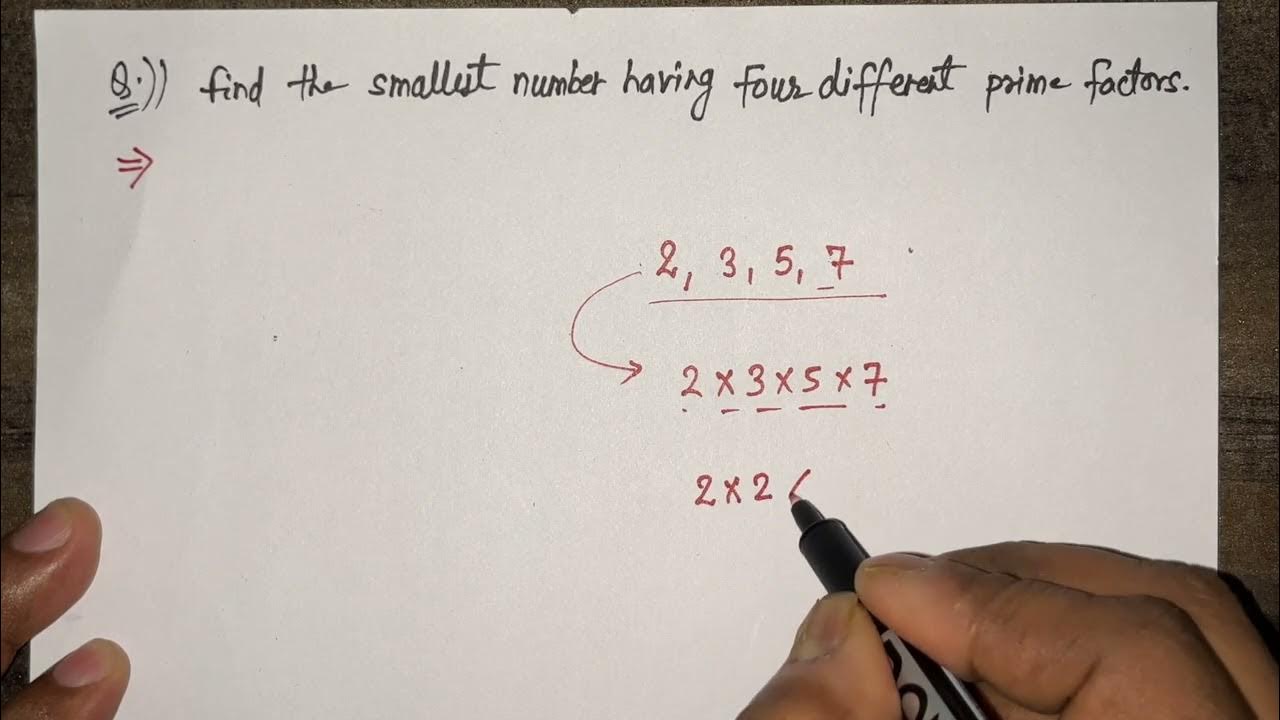 Q.)) find the smallest number having four different prime factors.
⇒
2, 3, 5, 7
2 × 3 × 5 × 7
2 × 2